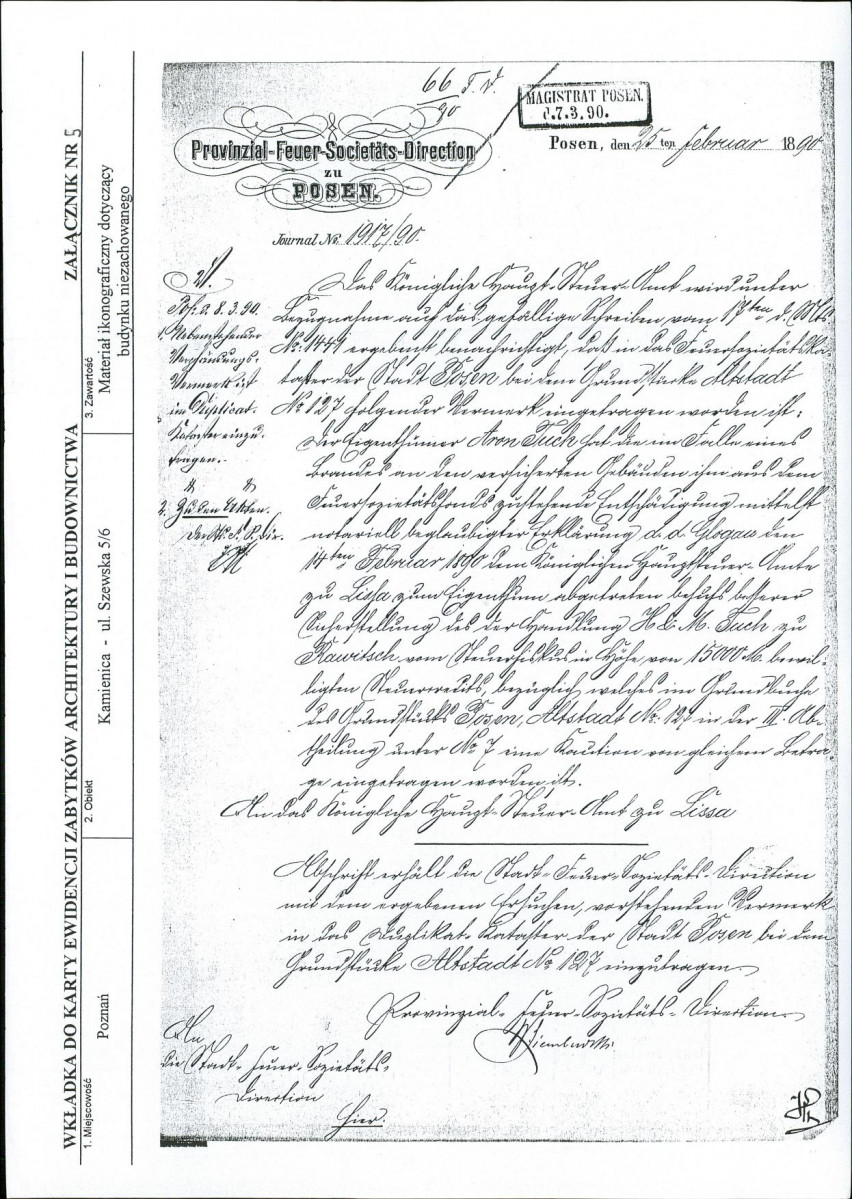 WKŁADKA DO KARTY EWIDENCJI ZABYTKÓW ARCHITEKTURY I BUDOWNICTWA ZAŁĄCZNIK NR 5
1. Miejscowość
Poznań
2. Obiekt
Kamienica - ul. Szewska 5/6
3. Zawartość
Materiał ikonograficzny dotyczący
budynku niezachowanego
66 F. V.
90
MAGISTRAT POSEN.
d.7.3.90.
Provinzial-Feuer-Societäts-Direction
zu
POSEN.
Posen, den 25 ten Februar 1890
Journal No. 1917/90.
Das Königliche Haupt-Steuer-Amt wird unter
Bezugnahme auf das gefällige Schreiben vom 17ten d. Mts.
No. 1441 ergebenst benachrichtigt, daß in das Feuersozietätska-
taster der Stadt Posen bei dem Grundstücke Altstadt
No 127 folgender Vermerk eingetragen worden ist:
Der Eigenthümer Aron Tuch hat die im Falle eines
Brandes an den versicherten Gebäuden ihm aus dem
Feuersozietätsfonds zustehende Entschädigung mittelst
notariell beglaubigter Erklärung d. d. Glogau den
14ten Februar 1890 dem Königlichen Hauptsteuer-Amte
zu Lissa zum Eigenthum abgetreten behufs besserer
Sicherstellung des der Handlung H. M. Tuch zu
Rawitsch vom Steuerfiskus in Höhe von 15000 M. bewil-
ligten Steuercredits, bezüglich welches im Grundbuche
des Grundstücks Posen, Altstadt No. 127 in der III. Ab-
theilung unter No 7 eine Kaution von gleichem Betra-
ge eingetragen worden ist.
An das Königliche Haupt-Steuer-Amt zu Lissa
Abschrift erhält die Stadt-Feuer-Sozietäts-Direction
mit dem ergebenen Ersuchen, vorstehenden Vermerk
in das Duplikat-Kataster der Stadt Posen bei dem
Grundstücke Altstadt No 127 einzutragen.
Provinzial-Feuer-Sozietäts-Direction
An
die Stadt-Feuer-Sozietäts-
Direction
Hier.
Pos. d. 8.3.90.
1. Nebenstehender
Verpfändungs-
Vermerk ist
im Duplicat-
Kataster einzu-
tragen.
2. Zu den Akten.